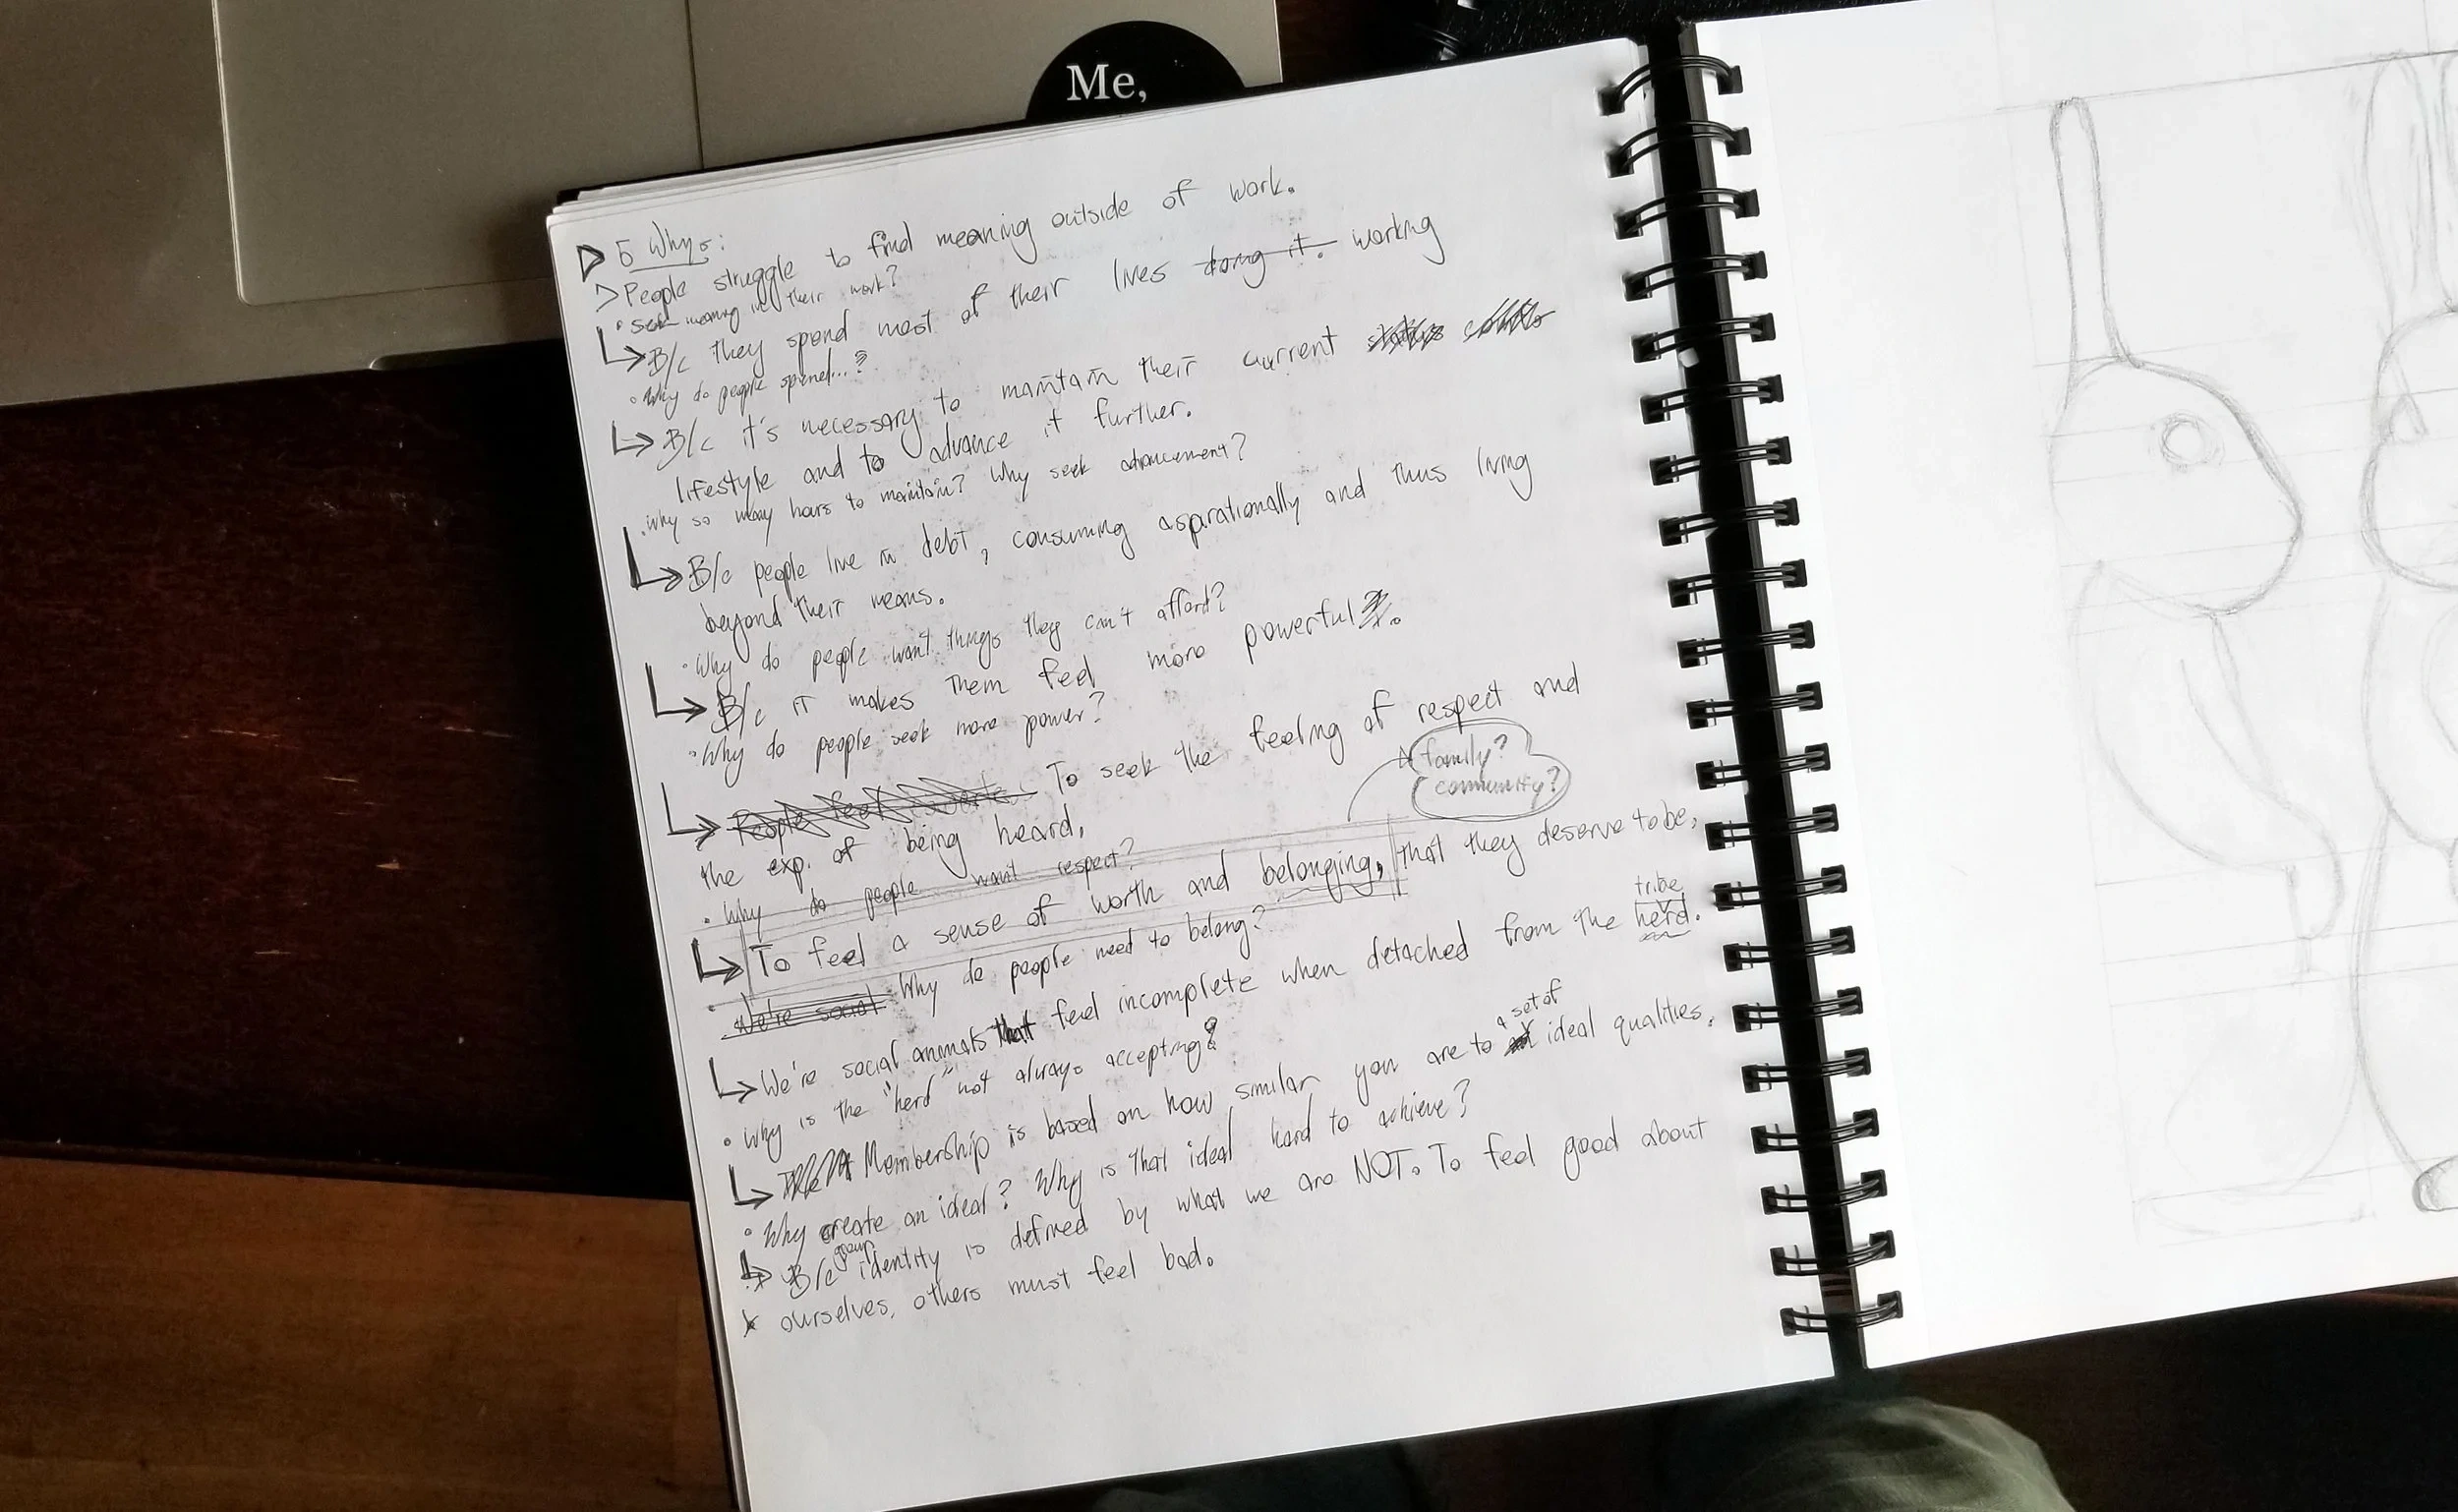 Me,
5 Whys:
People struggle to find meaning outside of work.
Seek meaning in their work?
B/c they spend most of their lives doing it. working
Why do people spend...?
B/c it's necessary to maintain their current
lifestyle and to advance it further.
Why so many hours to maintain? Why seek advancement?
B/c people live in debt, consuming aspirationally and thus living
beyond their means.
Why do people want things they can't afford?
B/c it makes them feel more powerful.
Why do people seek more power?
People feel To seek the feeling of respect and
the exp. of being heard,
family?
community?
Why do people want respect?
To feel a sense of worth and belonging, that they deserve to be,
We're social Why do people need to belong?
tribe
We're social animals that feel incomplete when detached from the herd.
Why is the "herd" not always accepting?
a set of
Membership is based on how similar you are to ideal qualities.
Why create an ideal? Why is that ideal hard to achieve?
group
B/c identity is defined by what we are NOT. To feel good about
ourselves, others must feel bad.